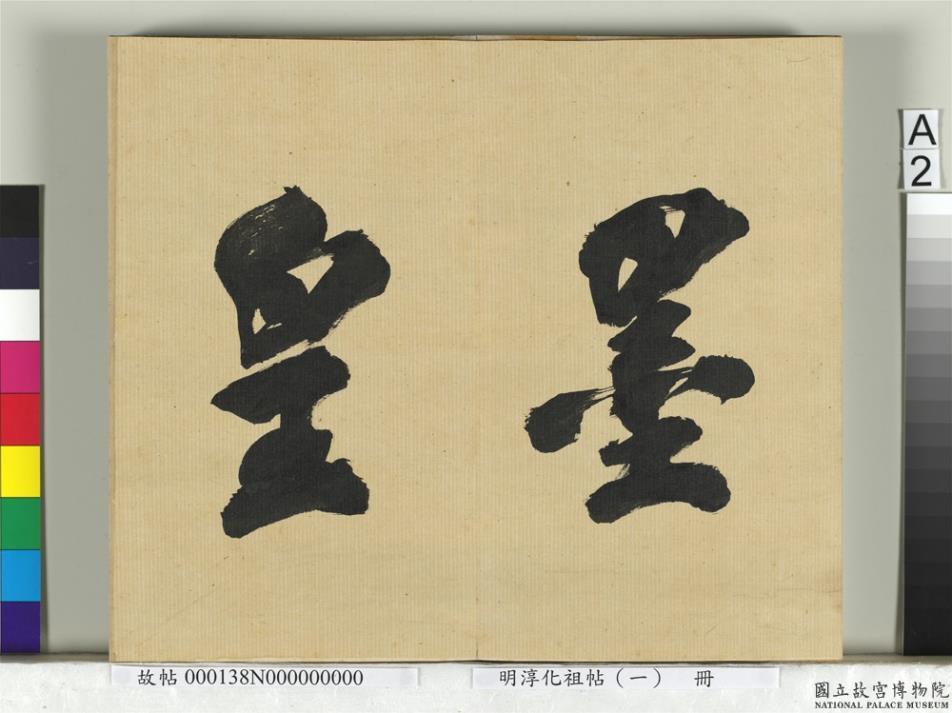 墨
皇
A
2
故帖 000138N000000000
明淳化祖帖（一） 冊
國立故宮博物院
NATIONAL PALACE MUSEUM